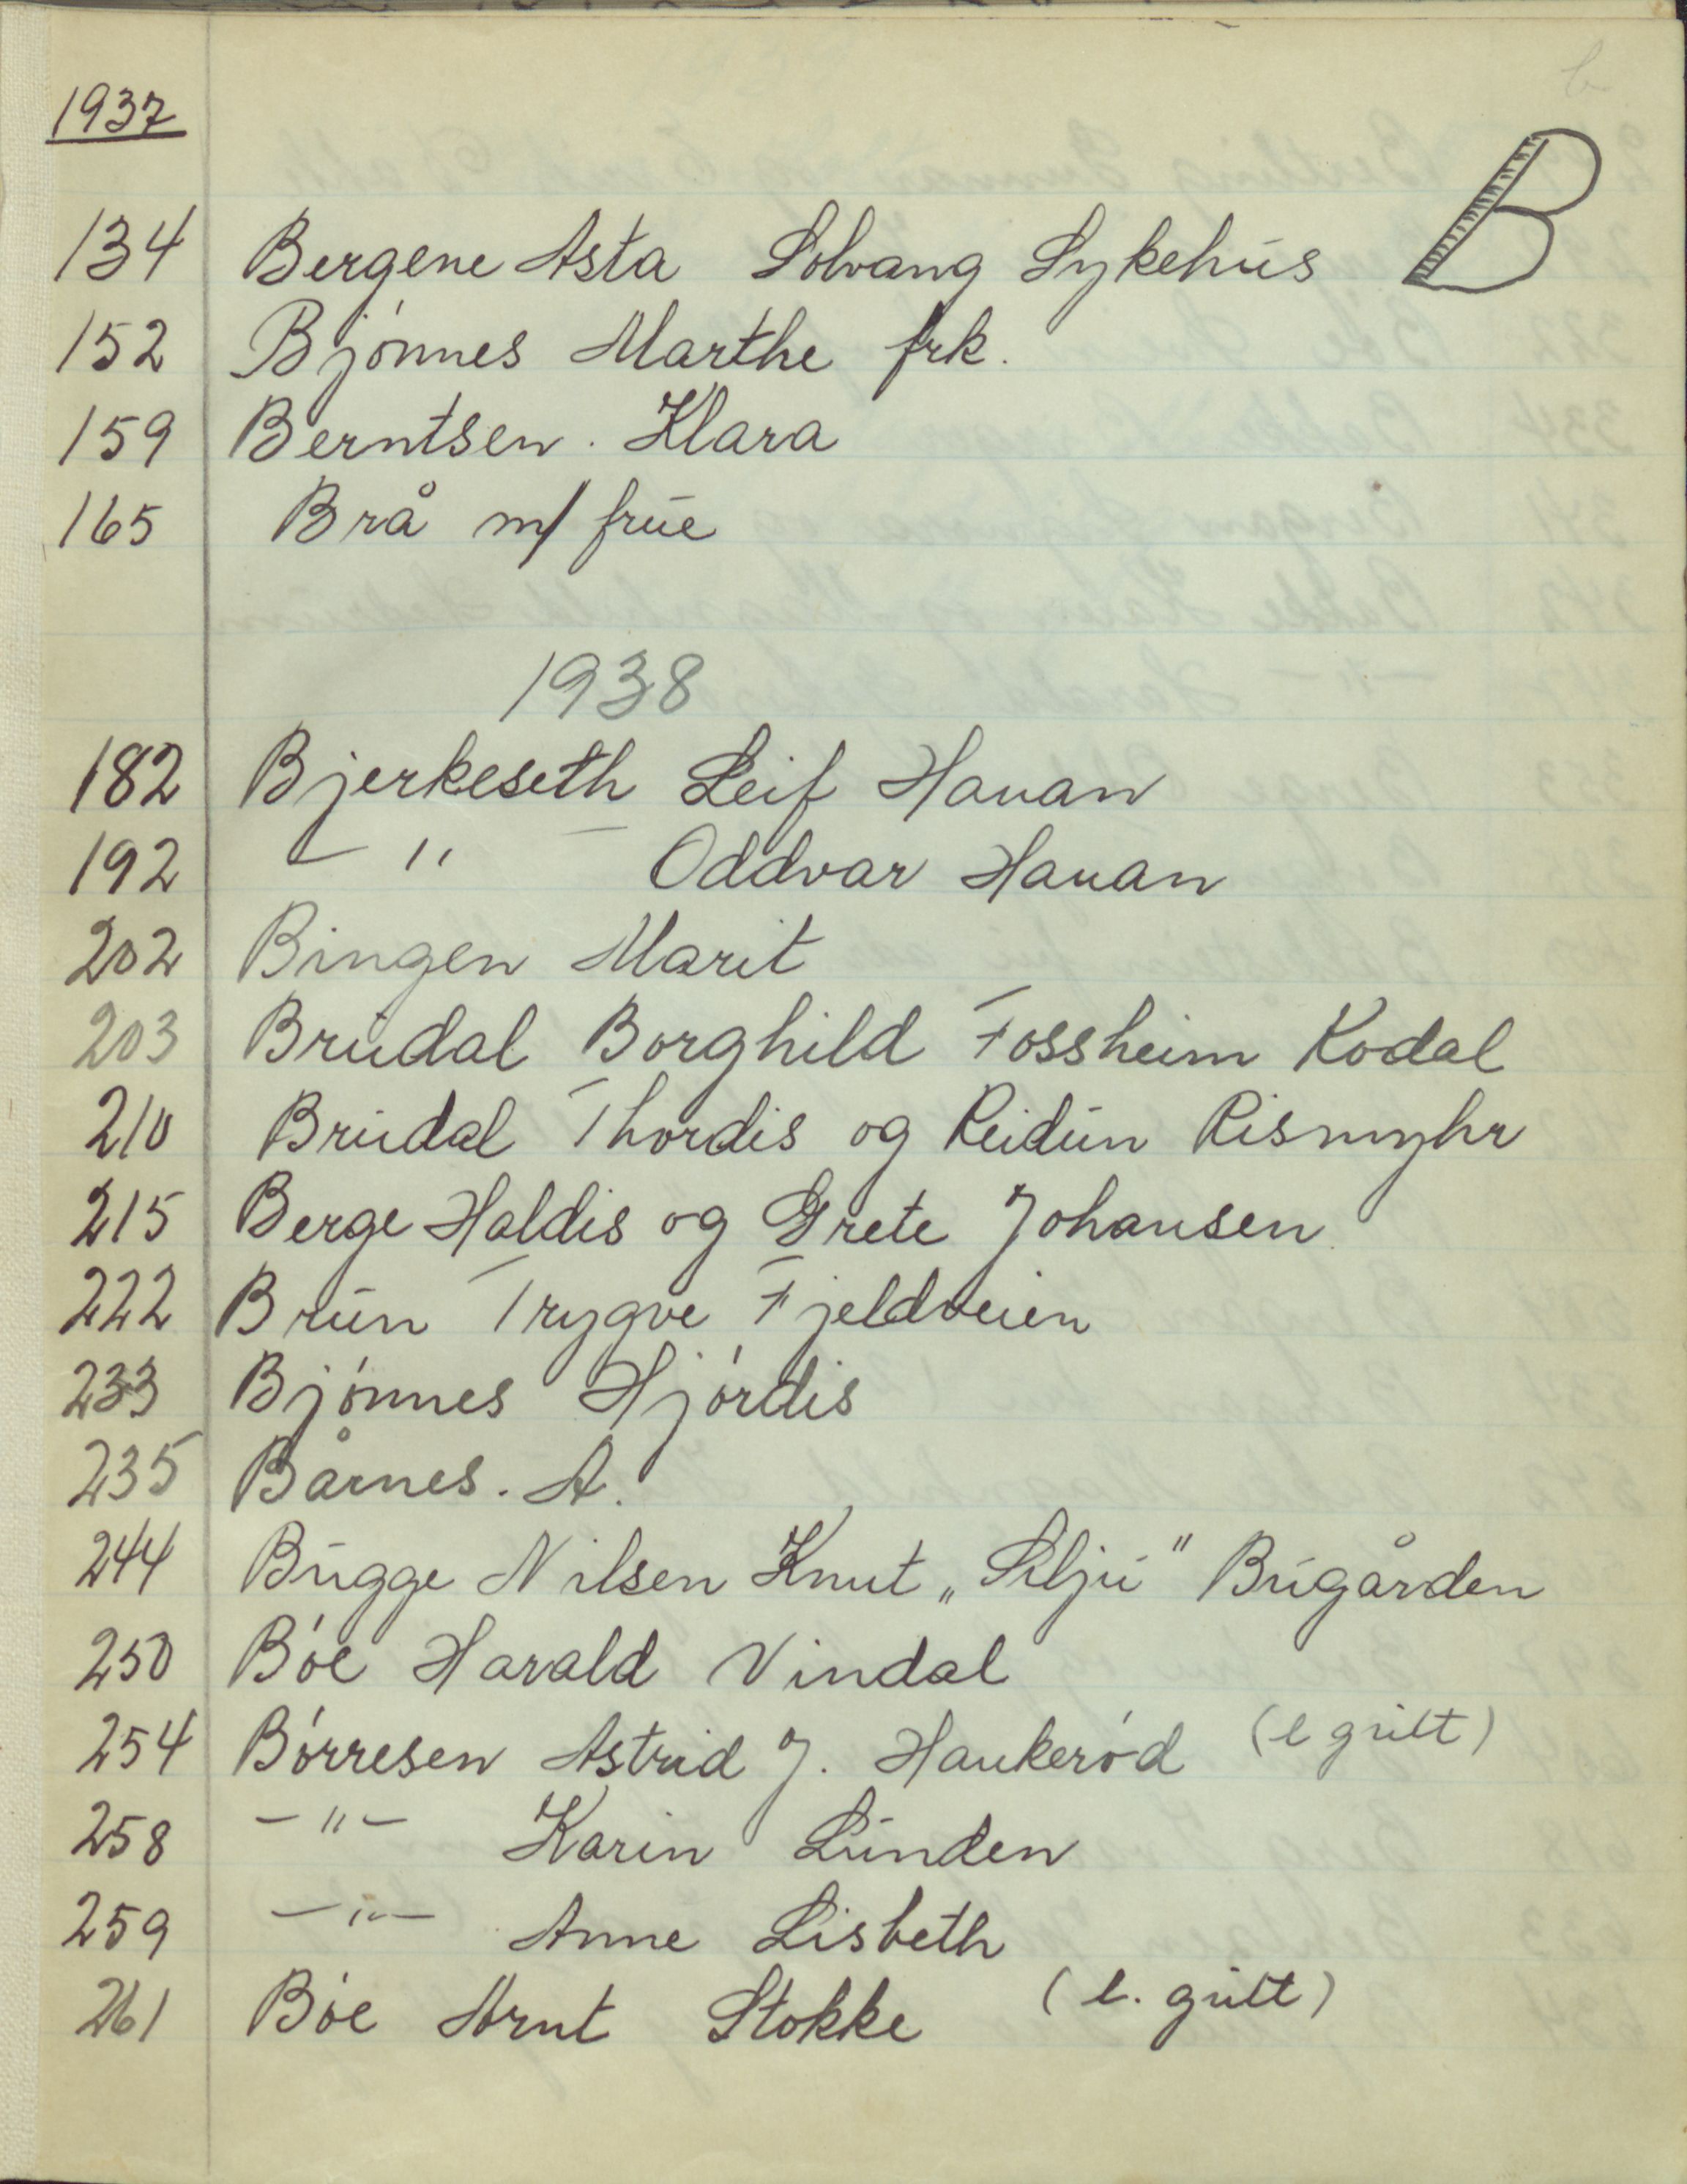 1937
B
134 Bergene Asta Solvang Sykehus
152 Bjønnes Marthe frk.
159 Berntsen. Klara
165 Brå m/ frue
1938
182 Bjerkeseth Leif Hauan
192 – " – Oddvar Hauan
202 Bingen Marit
203 Brudal Borghild Fossheim Kodal
210 Brudal Thordis og Reidun Rismyhr
215 Berge Haldis og Grete Johansen
222 Brun Trygve Fjeldveien
233 Bjønnes Hjørdis
235 Bårnes. A.
244 Bugge Nilsen Knut „Silju" Bugården
250 Bøe Harald Vindal
254 Børresen Astrid J. Haukerød (l gutt)
258 – " – Karin Lunden
259 – " – Anne Lisbeth
261 Bøe Arnt Stokke (l. gutt)